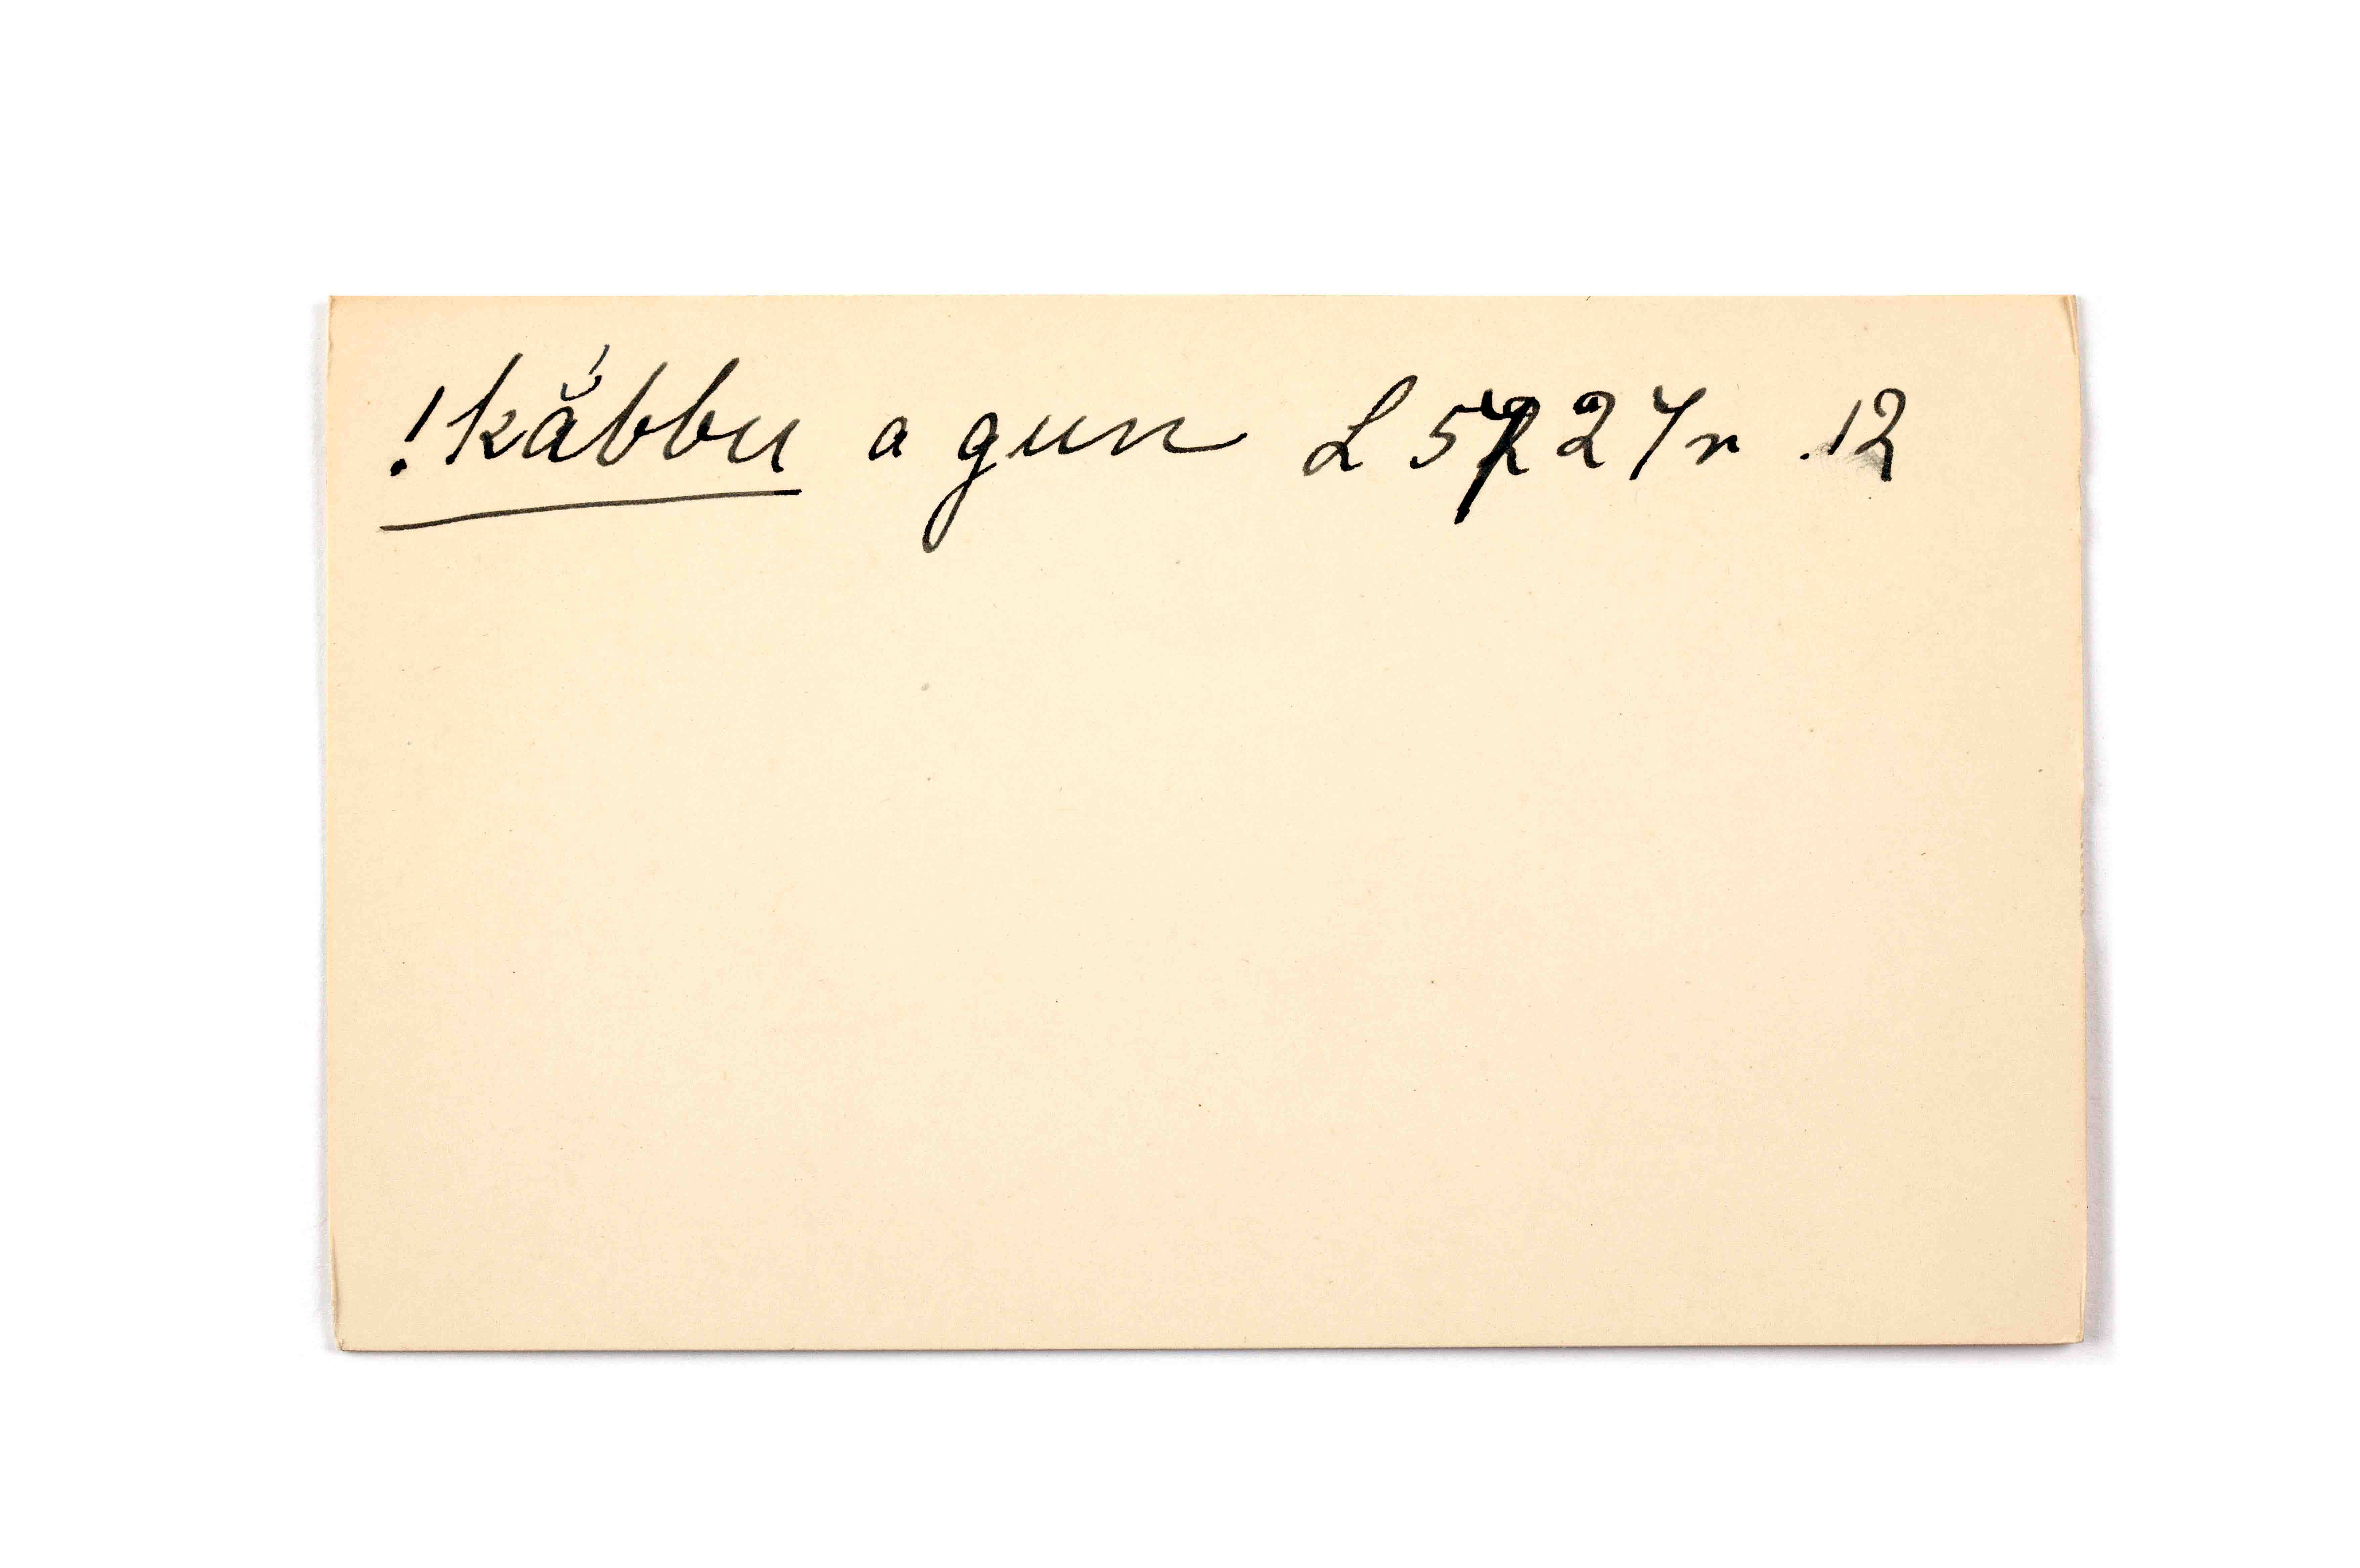 !kắbbu a gun L 5227r .12